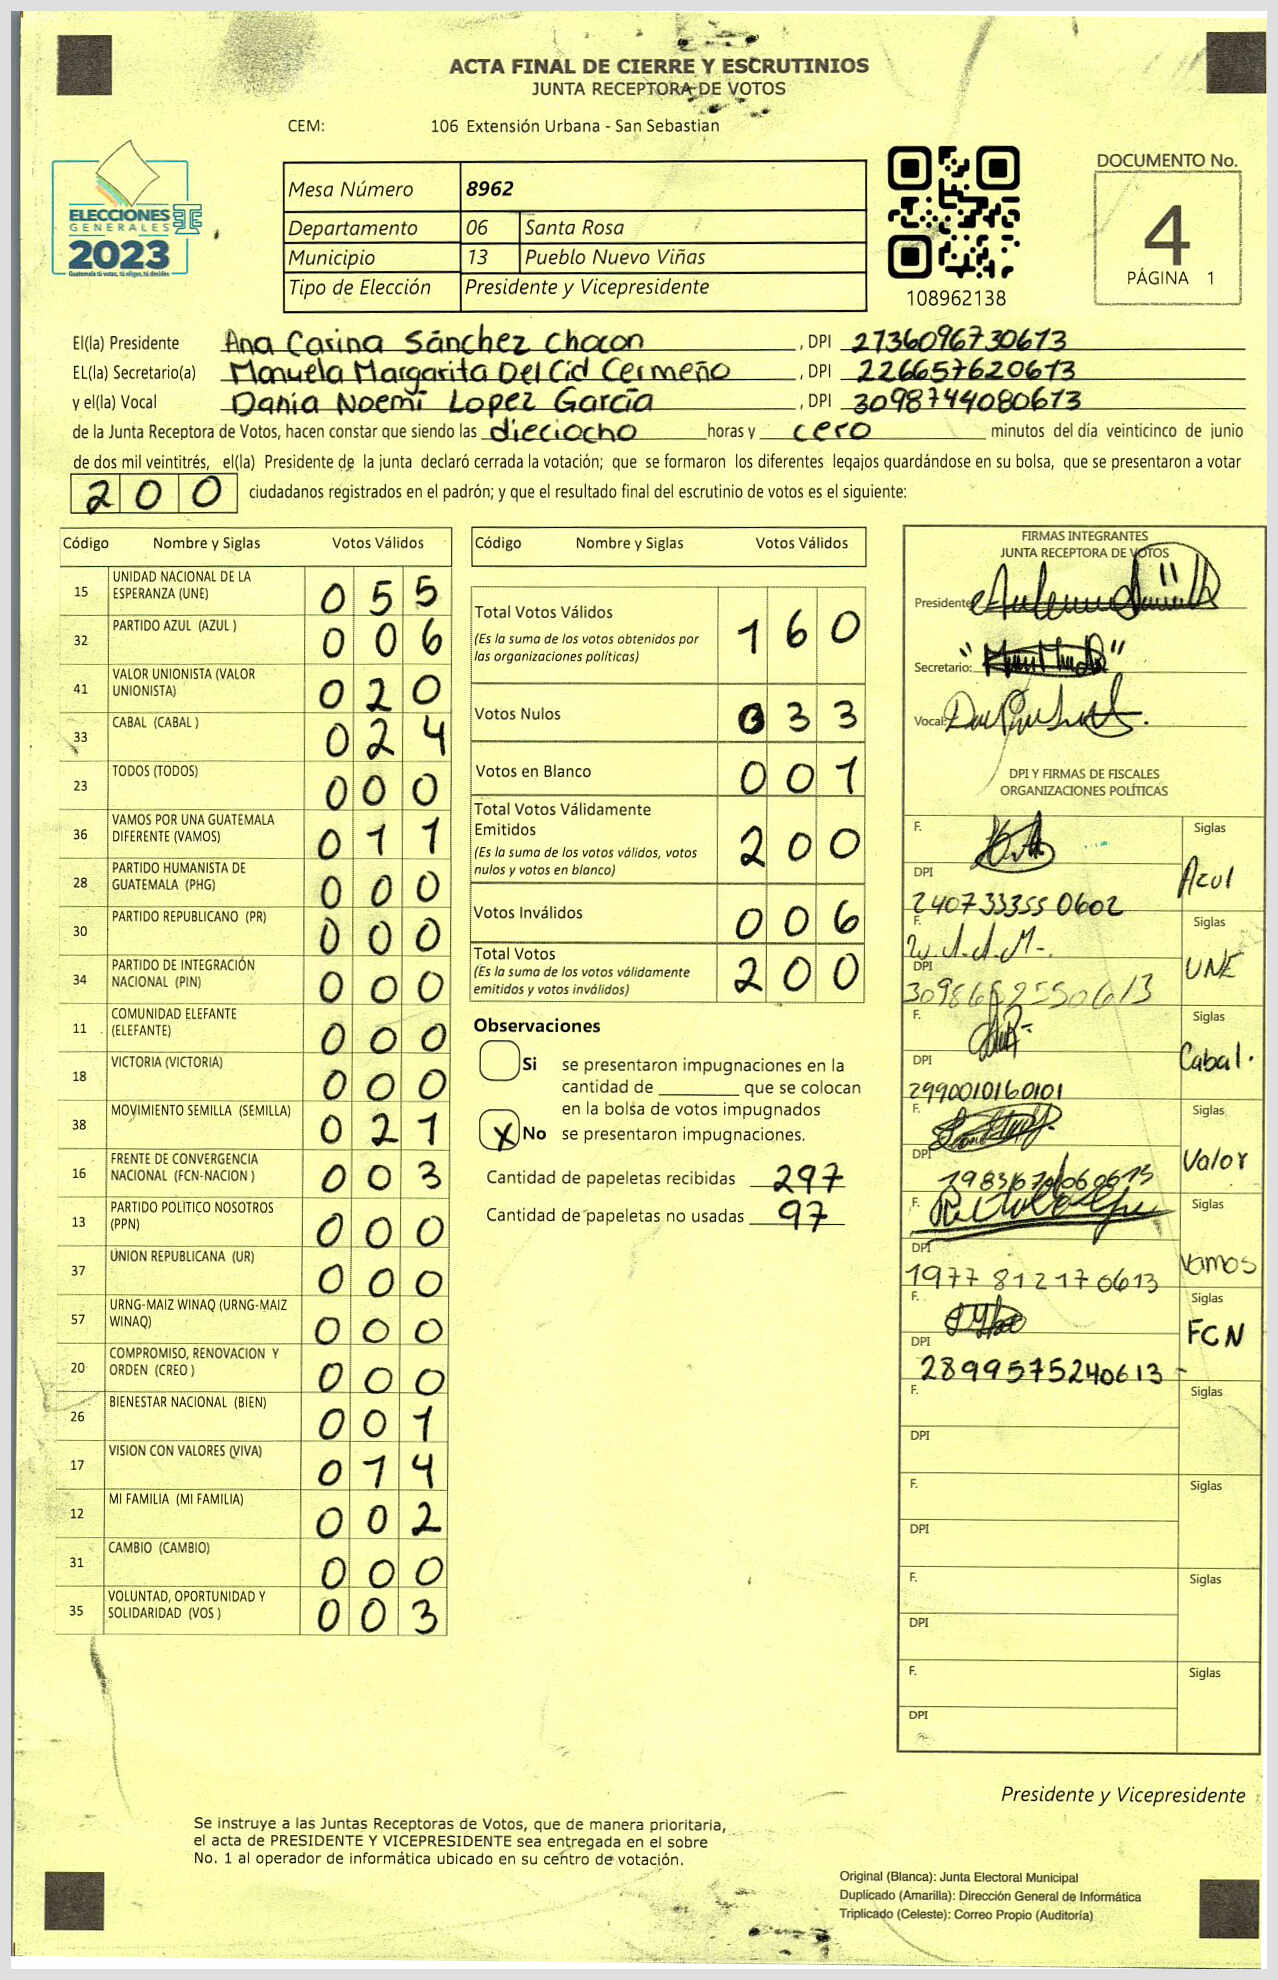 ACTA FINAL DE CIERRE Y ESCRUTINIOS
JUNTA RECEPTORA DE VOTOS
CEM: 106 Extensión Urbana - San Sebastian
ELECCIONES
GENERALES
2023
Guatemala tú votas, tú eliges, tú decides
Mesa Número 8962
Departamento 06 Santa Rosa
Municipio 13 Pueblo Nuevo Viñas
Tipo de Elección Presidente y Vicepresidente
108962138
DOCUMENTO No.
4
PÁGINA 1
El(la) Presidente Ana Carina Sánchez Chacon , DPI 2736096730613
EL(la) Secretario(a) Manuela Margarita Del Cid Cermeño , DPI 226657620613
y el(la) Vocal Dania Noemí Lopez García , DPI 3098744080613
de la Junta Receptora de Votos, hacen constar que siendo las dieciocho horas y cero minutos del día veinticinco de junio
de dos mil veintitrés, el(la) Presidente de la junta declaró cerrada la votación; que se formaron los diferentes legajos guardándose en su bolsa, que se presentaron a votar
200 ciudadanos registrados en el padrón; y que el resultado final del escrutinio de votos es el siguiente:
Código Nombre y Siglas Votos Válidos
15 UNIDAD NACIONAL DE LA ESPERANZA (UNE) 055
32 PARTIDO AZUL (AZUL ) 006
41 VALOR UNIONISTA (VALOR UNIONISTA) 020
33 CABAL (CABAL ) 024
23 TODOS (TODOS) 000
36 VAMOS POR UNA GUATEMALA DIFERENTE (VAMOS) 011
28 PARTIDO HUMANISTA DE GUATEMALA (PHG) 000
30 PARTIDO REPUBLICANO (PR) 000
34 PARTIDO DE INTEGRACIÓN NACIONAL (PIN) 000
11 COMUNIDAD ELEFANTE (ELEFANTE) 000
18 VICTORIA (VICTORIA) 000
38 MOVIMIENTO SEMILLA (SEMILLA) 021
16 FRENTE DE CONVERGENCIA NACIONAL (FCN-NACION ) 003
13 PARTIDO POLITICO NOSOTROS (PPN) 000
37 UNION REPUBLICANA (UR) 000
57 URNG-MAIZ WINAQ (URNG-MAIZ WINAQ) 000
20 COMPROMISO, RENOVACION Y ORDEN (CREO ) 000
26 BIENESTAR NACIONAL (BIEN) 001
17 VISION CON VALORES (VIVA) 014
12 MI FAMILIA (MI FAMILIA) 002
31 CAMBIO (CAMBIO) 000
35 VOLUNTAD, OPORTUNIDAD Y SOLIDARIDAD (VOS ) 003
Código Nombre y Siglas Votos Válidos
Total Votos Válidos 160
(Es la suma de los votos obtenidos por
las organizaciones políticas)
Votos Nulos 033
Votos en Blanco 001
Total Votos Válidamente
Emitidos 200
(Es la suma de los votos válidos, votos
nulos y votos en blanco)
Votos Inválidos 006
Total Votos 200
(Es la suma de los votos válidamente
emitidos y votos inválidos)
Observaciones
Si se presentaron impugnaciones en la
cantidad de ________ que se colocan
en la bolsa de votos impugnados
X No se presentaron impugnaciones.
Cantidad de papeletas recibidas 297
Cantidad de papeletas no usadas 97
FIRMAS INTEGRANTES
JUNTA RECEPTORA DE VOTOS
Presidente:
Secretario:
Vocal:
DPI Y FIRMAS DE FISCALES
ORGANIZACIONES POLÍTICAS
F. Siglas
DPI Azul
240733355 0602
F. W.A.A.M-. Siglas
DPI UNE
F. Siglas
DPI Cabal.
2990010160101
F. Siglas
DPI Valor
F. Siglas
DPI Vamos
1977 81217 0613
F. Siglas
DPI FCN
2899575240613-
F. Siglas
DPI
F. Siglas
DPI
F. Siglas
DPI
F. Siglas
DPI
Presidente y Vicepresidente
Se instruye a las Juntas Receptoras de Votos, que de manera prioritaria,
el acta de PRESIDENTE Y VICEPRESIDENTE sea entregada en el sobre
No. 1 al operador de informática ubicado en su centro de votación.
Original (Blanca): Junta Electoral Municipal
Duplicado (Amarilla): Dirección General de Informática
Triplicado (Celeste): Correo Propio (Auditoría)